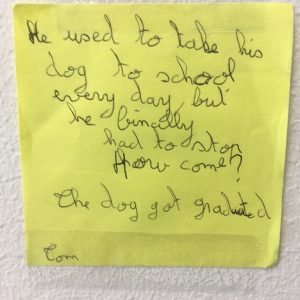 He used to take his
dog to school
every day, but
he finally
had to stop
How come?
The dog got graduated
Tom